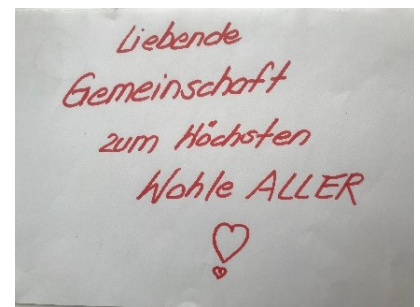 Liebende
Gemeinschaft
zum Höchsten
Wohle ALLER